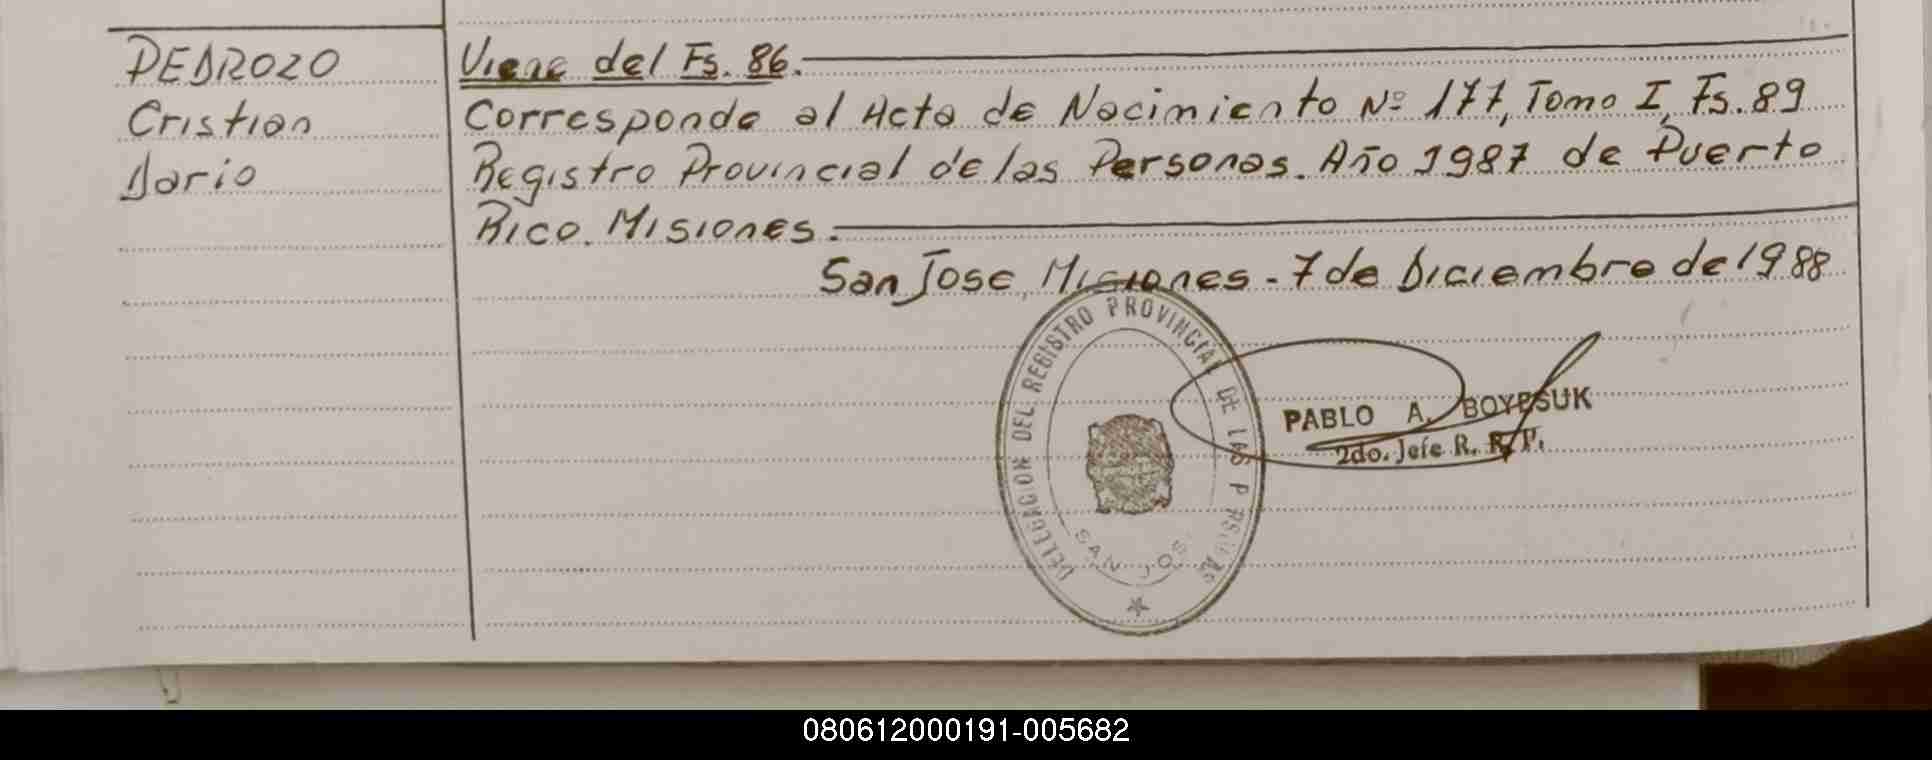 PEDROZO
Cristian
Dario
Viene del Fs. 86.
Corresponde al Acta de Nacimiento Nº 177, Tomo I, Fs. 89
Registro Provincial de las Personas. Año 1987 de Puerto
Rico. Misiones.
San Jose, Misiones - 7 de Diciembre de 1988
DELEGACION DEL REGISTRO PROVINCIAL DE LAS P RSONAS
SAN JOS
PABLO A. BOYESUK
2do. Jefe R. R. P.
080612000191-005682